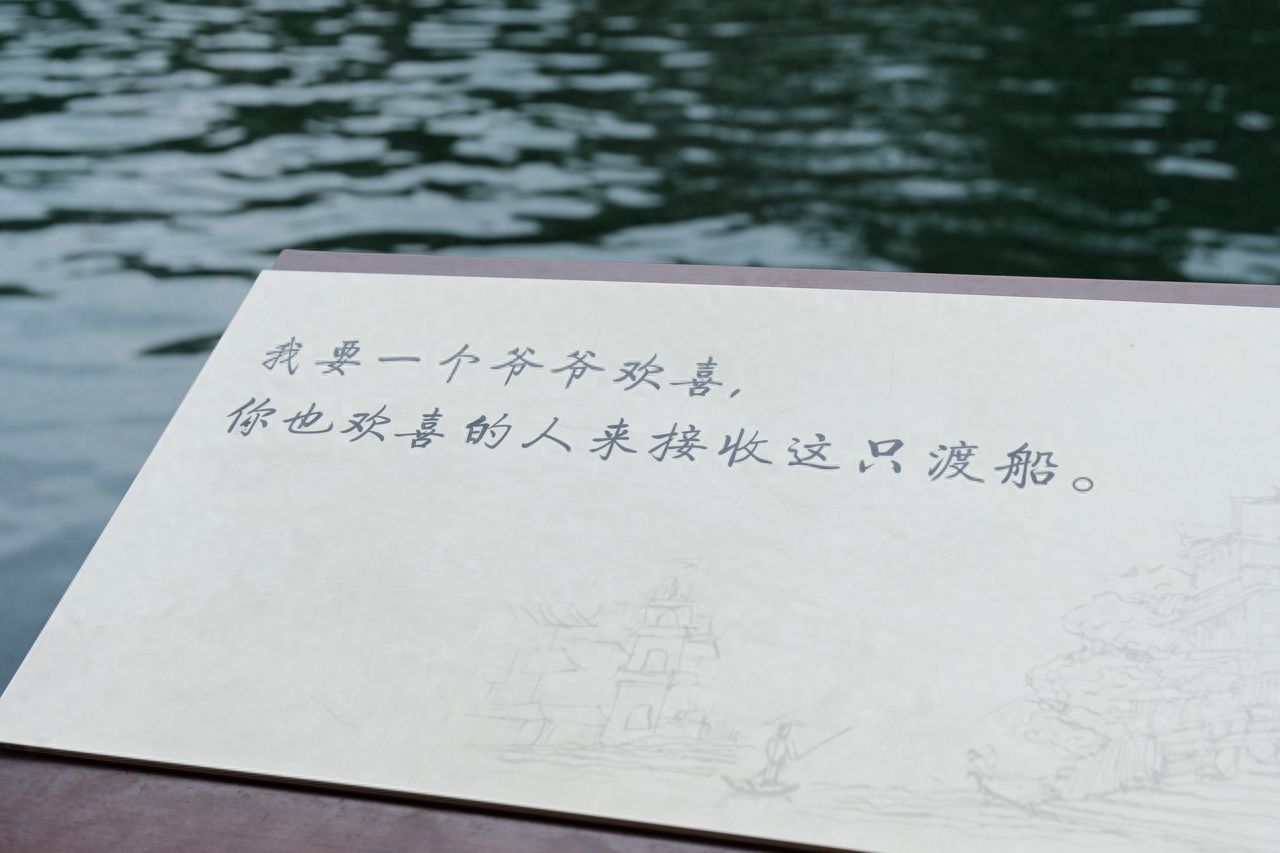 我要一个爷爷欢喜,
你也欢喜的人来接收这只渡船。